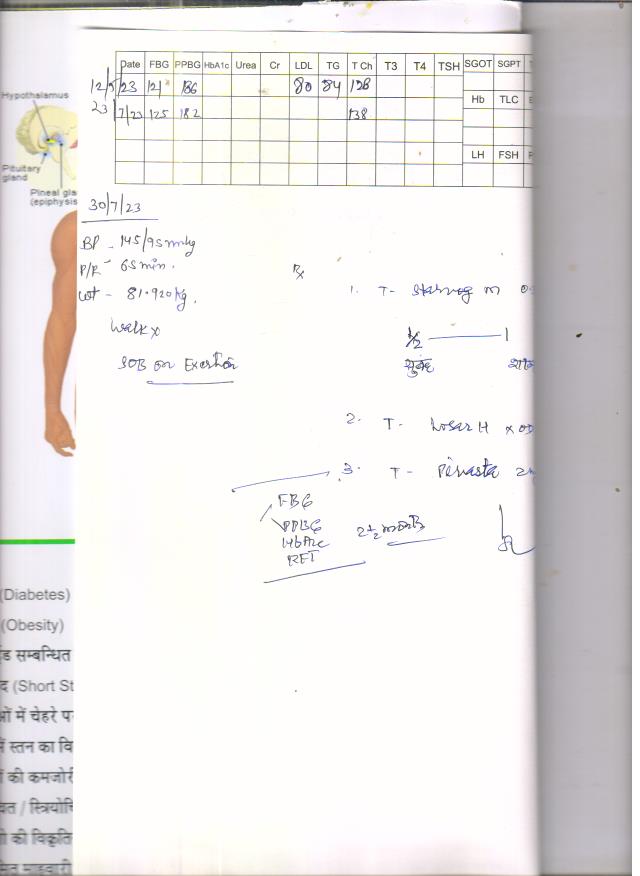 Date FBG PPBG HbA1c Urea Cr LDL TG T Ch T3 T4 TSH SGOT SGPT
12/5/23 121 186 80 84 128
Hb TLC
23/7/23 125 182 138
LH FSH
Hypothalamus
Pituitary
gland
Pineal gla
(epiphysis
30/7/23
BP - 145/95 mmHg
P/R - 65 min.
wt - 81.920 kg.
Walk x
SOB on Exertion
Rx
1. T- m
1/2 1
सुबह शाम
2. T- Losar H x OD
3. T-
FBG
PPBG
HbA1c
2 1/2 month
(Diabetes)
(Obesity)
ड सम्बन्धित
द (Short St
ओं में चेहरे प
में स्तन का वि
ों की कमजोरी
/ स्त्रियोचि
ी की विकृति
मित माहवारी